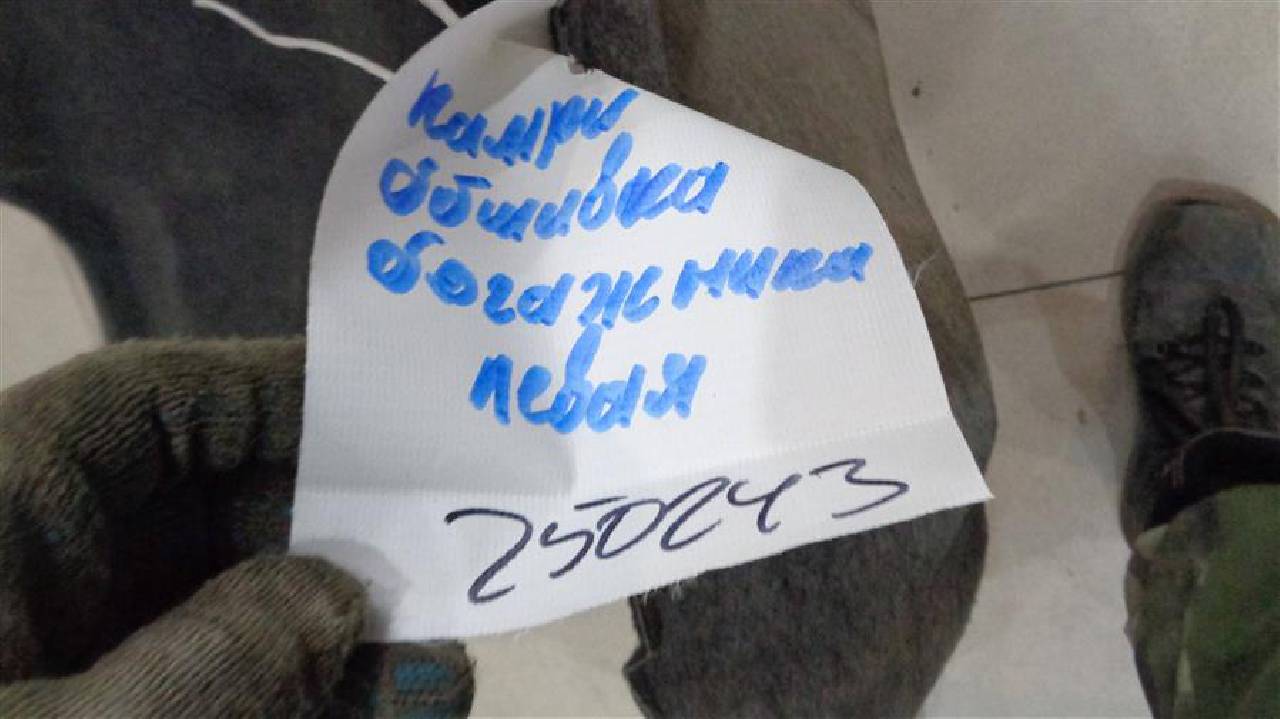 Камри
Обшивка
богажника
левая
250243